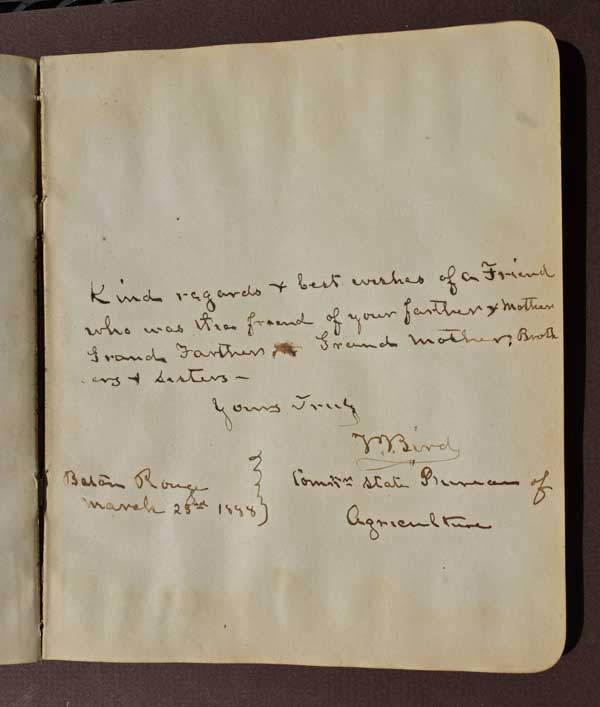 Kind regards & best wishes of a Friend
who was the friend of your farther & Mother
Grand Farther, Grand Mother, Broth
ers & Sisters—
Yours Truly
T. J. Bird
Baton Rouge
March 23rd 1888
Commr State Bureau of
Agriculture